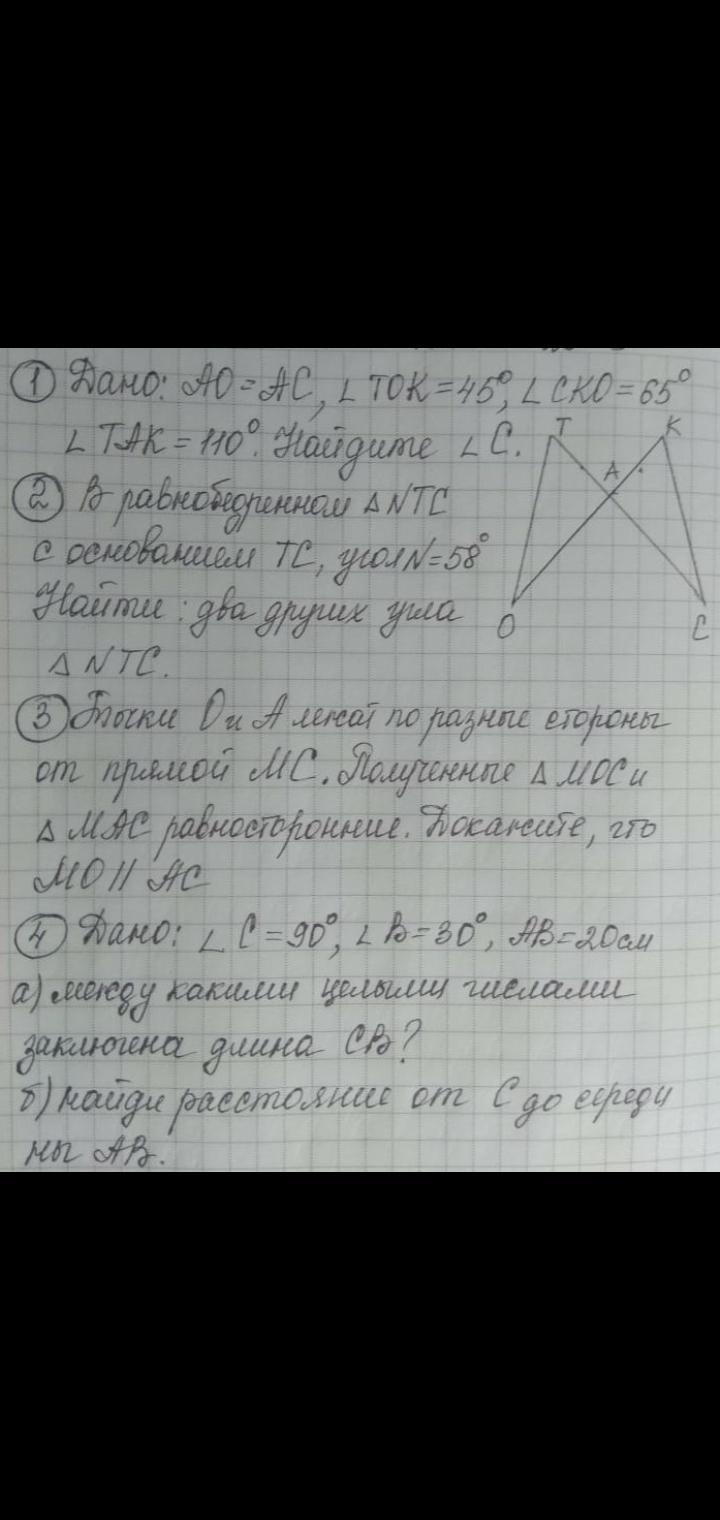 ① Дано: АО=АС, ∠ТОК=45°, ∠СКО=65°
∠ТАК=110°. Найдите ∠С.
Т К
А
② В равнобедренном △NТС
с основанием ТС, угол N=58°
Найти: два других угла
О С
△NТС.
③ Точки О и А лежат по разные стороны
от прямой МС. Полученные △МОС и
△МАС равносторонние. Докажите, что
МО∥АС
④ Дано: ∠С=90°, ∠В=30°, АВ=20см
а) между какими целыми числами
заключена длина СВ?
б) найди расстояние от С до середи
ны АВ.